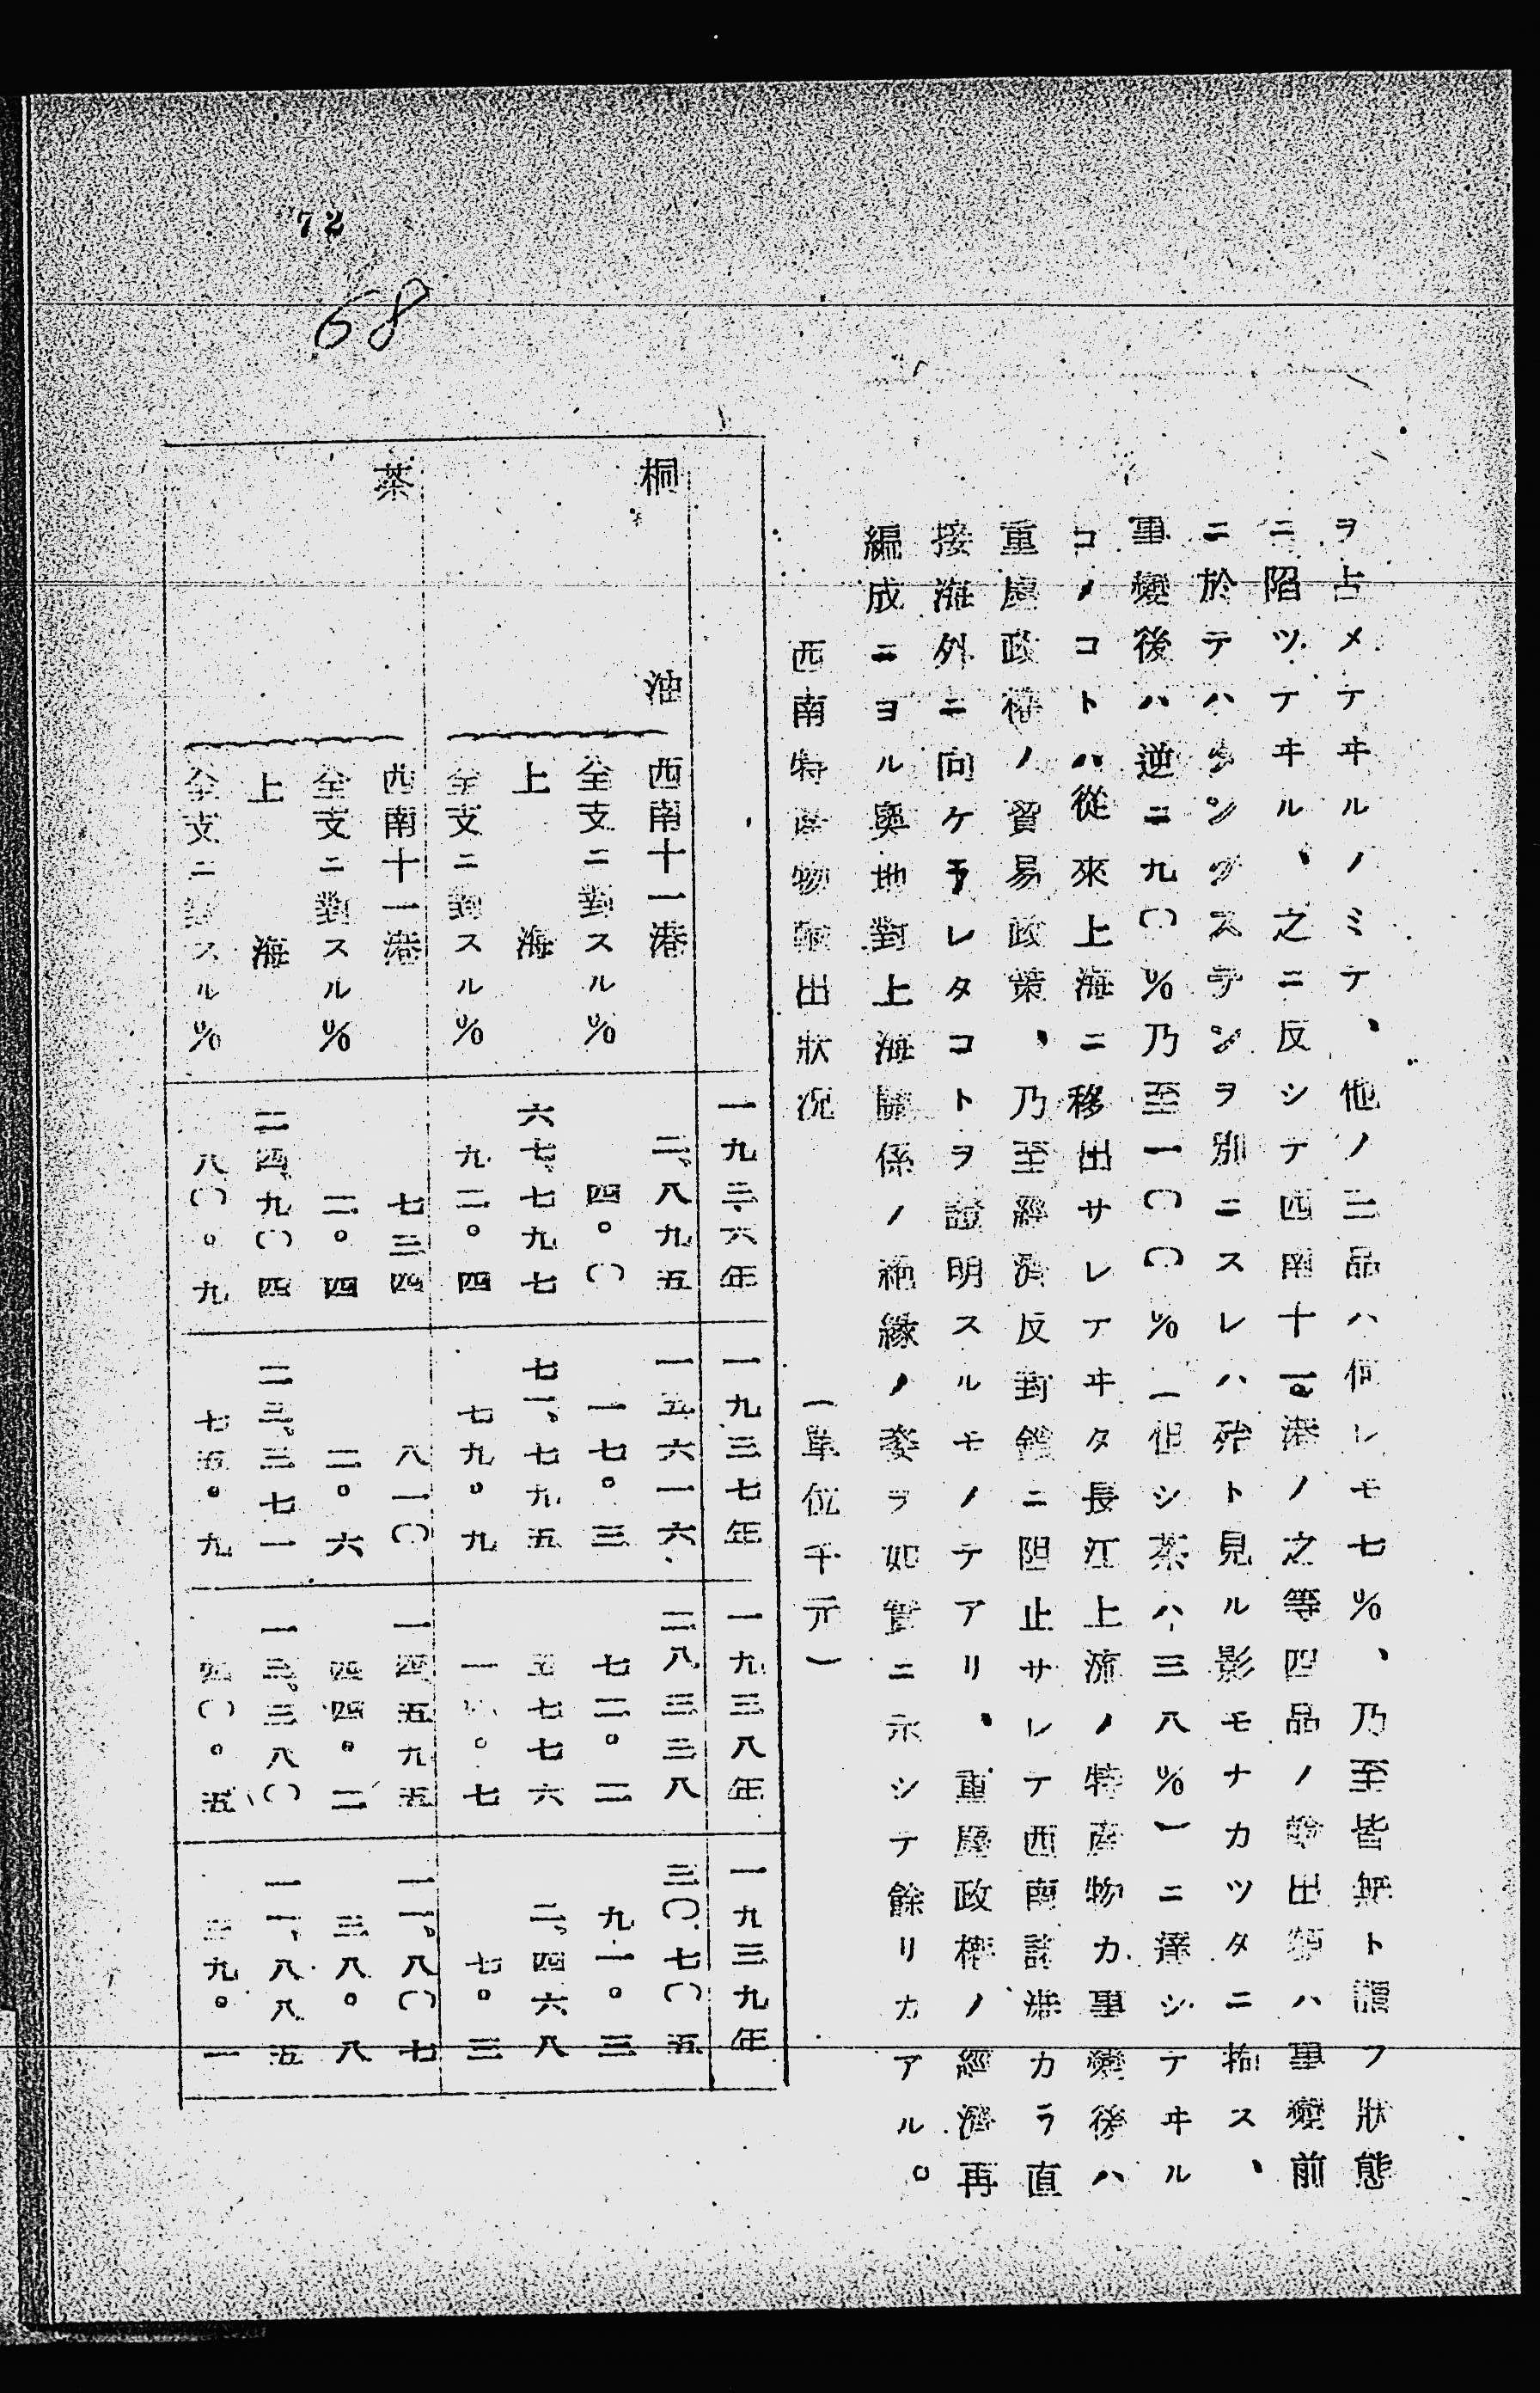 72
68
ヲ占メテヰルノミテ、他ノ三品ハ何レモ七％、乃至皆無ト謂フ狀態
ニ陷ツテヰル、之ニ反シテ西南十一港ノ之等四品ノ輸出額ハ事變前
ニ於テハタングステンヲ別ニスレハ殆ト見ル影モナカツタニ拘ス、
事變後ハ逆ニ九〇％乃至一〇〇％（但シ茶ハ三八％）ニ達シテヰル
コノコトハ從來上海ニ移出サレテヰタ長江上流ノ特產物カ事變後ハ
重慶政權ノ貿易政策、乃至經濟反封鎖ニ阻止サレテ西南諸港カラ直
接海外ニ向ケラレタコトヲ證明スルモノテアリ、重慶政權ノ經濟再
編成ニヨル奧地對上海關係ノ絕緣ノ姿ヲ如實ニ示シテ餘リカアル。
西南特產物輸出狀況　（單位千元）
一九三六年　一九三七年　一九三八年　一九三九年
桐油　西南十一港　二、八九五　一五六一六　二八三三八　三〇、七〇五
全支ニ對スル％　四。〇　一七。三　七二。二　九一。三
上海　六七、七九七　七一、七九五　五七七六　二、四六八
全支ニ對スル％　九二。四　七九。九　一四。七　七。三
茶　西南十一港　七三四　八一〇　一四五九五　一一、八〇七
全支ニ對スル％　二。四　二。六　四四。二　三八。八
上海　二四、九〇四　二三、三七一　一三、三八〇　一一、八八五
全支ニ對スル％　八〇。九　七五。九　四〇。五　三九。一